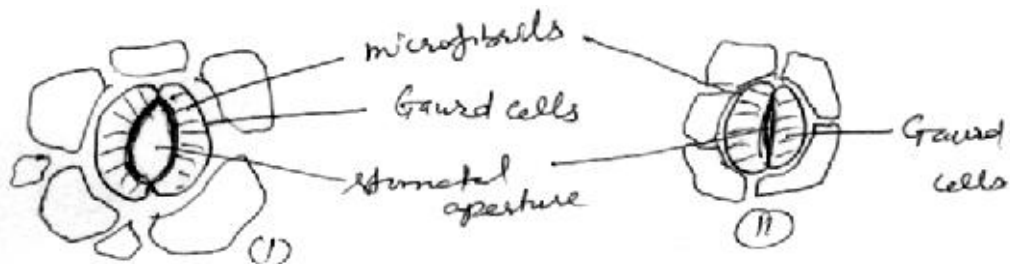 microfibrils
Gaurd cells
stomatal
aperture
Gaurd
cells
(I)
(II)